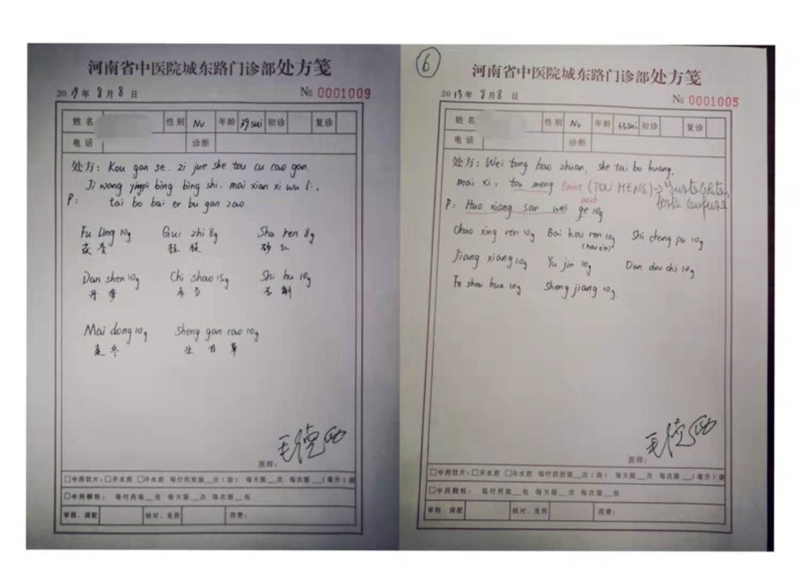 河南省中医院城东路门诊部处方笺
2019年 8月 8日 № 0001009
姓名 性别 Nu 年龄 39sui 初诊 复诊
电话 诊断
处方: Kou gan se. zi jue she tou cu cao gan.
Ji wang bing bing shi. mai xian xi wu li,
P: tai bo bai er bu gan zao.
Fu Ling 10g Gui zhi 8g Sha ren 8g
茯苓 桂枝 砂仁
Dan shen 10g Chi shao 15g Shi hu 10g
丹参 赤芍 石斛
Mai dong 10g Sheng gan cao 10g
麦冬 生甘草
医师:
□中药饮片: □开水煎 □冷水煎 每付药煎服__次(袋) 每天服__次 每次服__(毫升)袋
□中药颗粒: 每付药装__包 每天服__次 每次服__包
审核、调配 核对、发药 药费:
6
河南省中医院城东路门诊部处方笺
2019年 8月8日 № 0001005
姓名 性别 Nu 年龄 33sui 初诊 复诊
电话 诊断
处方: Wei tong hao zhuan. she tai bo huang.
mai xi, tou meng (TOU MENG)
P: Huo xiang san wei each ge 10g
Chao xing ren 10g Bai kou ren 10g (hou xia) Shi chang pu 10g
Jiang xiang 10g Yu jin 10g Dan dou shi 10g
Fo shou hua 10g Sheng jiang 10g.
医师:
□中药饮片: □开水煎 □冷水煎 每付药煎服__次(袋) 每天服__次 每次服__(毫升)袋
□中药颗粒: 每付药装__包 每天服__次 每次服__包
审核、调配 核对、发药 药费: